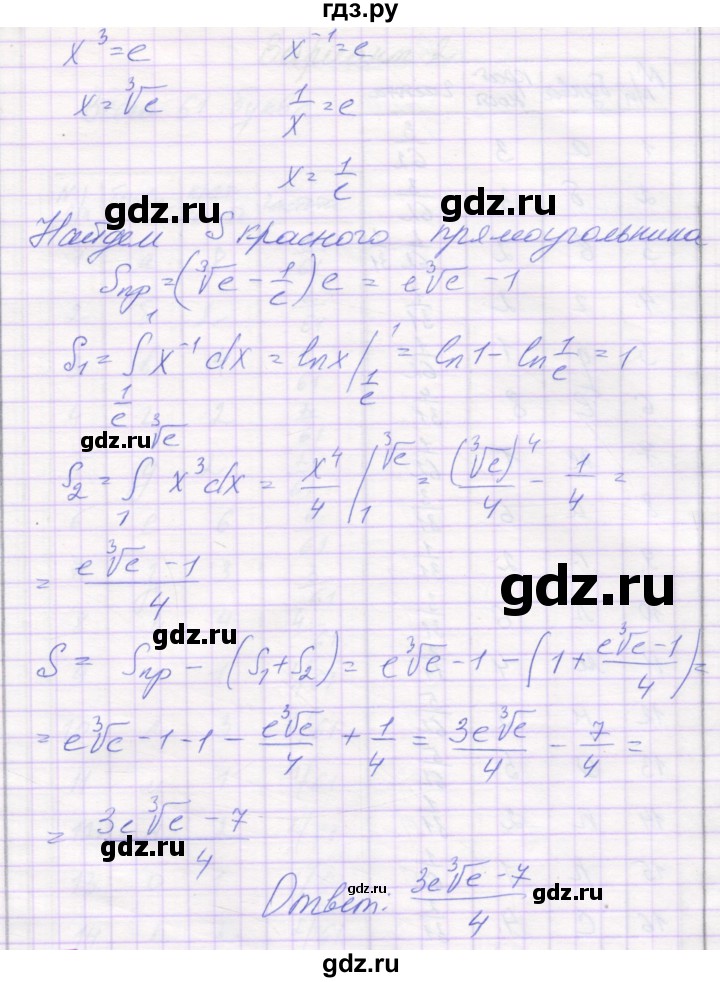 гдз.ру
x³ = e    x⁻¹ = e
x = ∛e    1/x = e
x = 1/e
gdz.ru
gdz.ru
Найдем S красного прямоугольника
Sпр = (∛e − 1/e) e = e∛e − 1
gdz.ru
S₁ = ∫_{1/e}^{1} x⁻¹ dx = ln x |_{1/e}^{1} = ln 1 − ln 1/e = 1
gdz.ru
S₂ = ∫_{1}^{∛e} x³ dx = x⁴/4 |_{1}^{∛e} = (∛e)⁴/4 − 1/4 =
= (e∛e − 1)/4
gdz.ru
gdz.ru
S = Sпр − (S₁ + S₂) = e∛e − 1 − (1 + (e∛e − 1)/4) =
= e∛e − 1 − 1 − e∛e/4 + 1/4 = 3e∛e/4 − 7/4 =
= (3e∛e − 7)/4
gdz.ru
gdz.ru
gdz.ru
Ответ: (3e∛e − 7)/4
gdz.ru